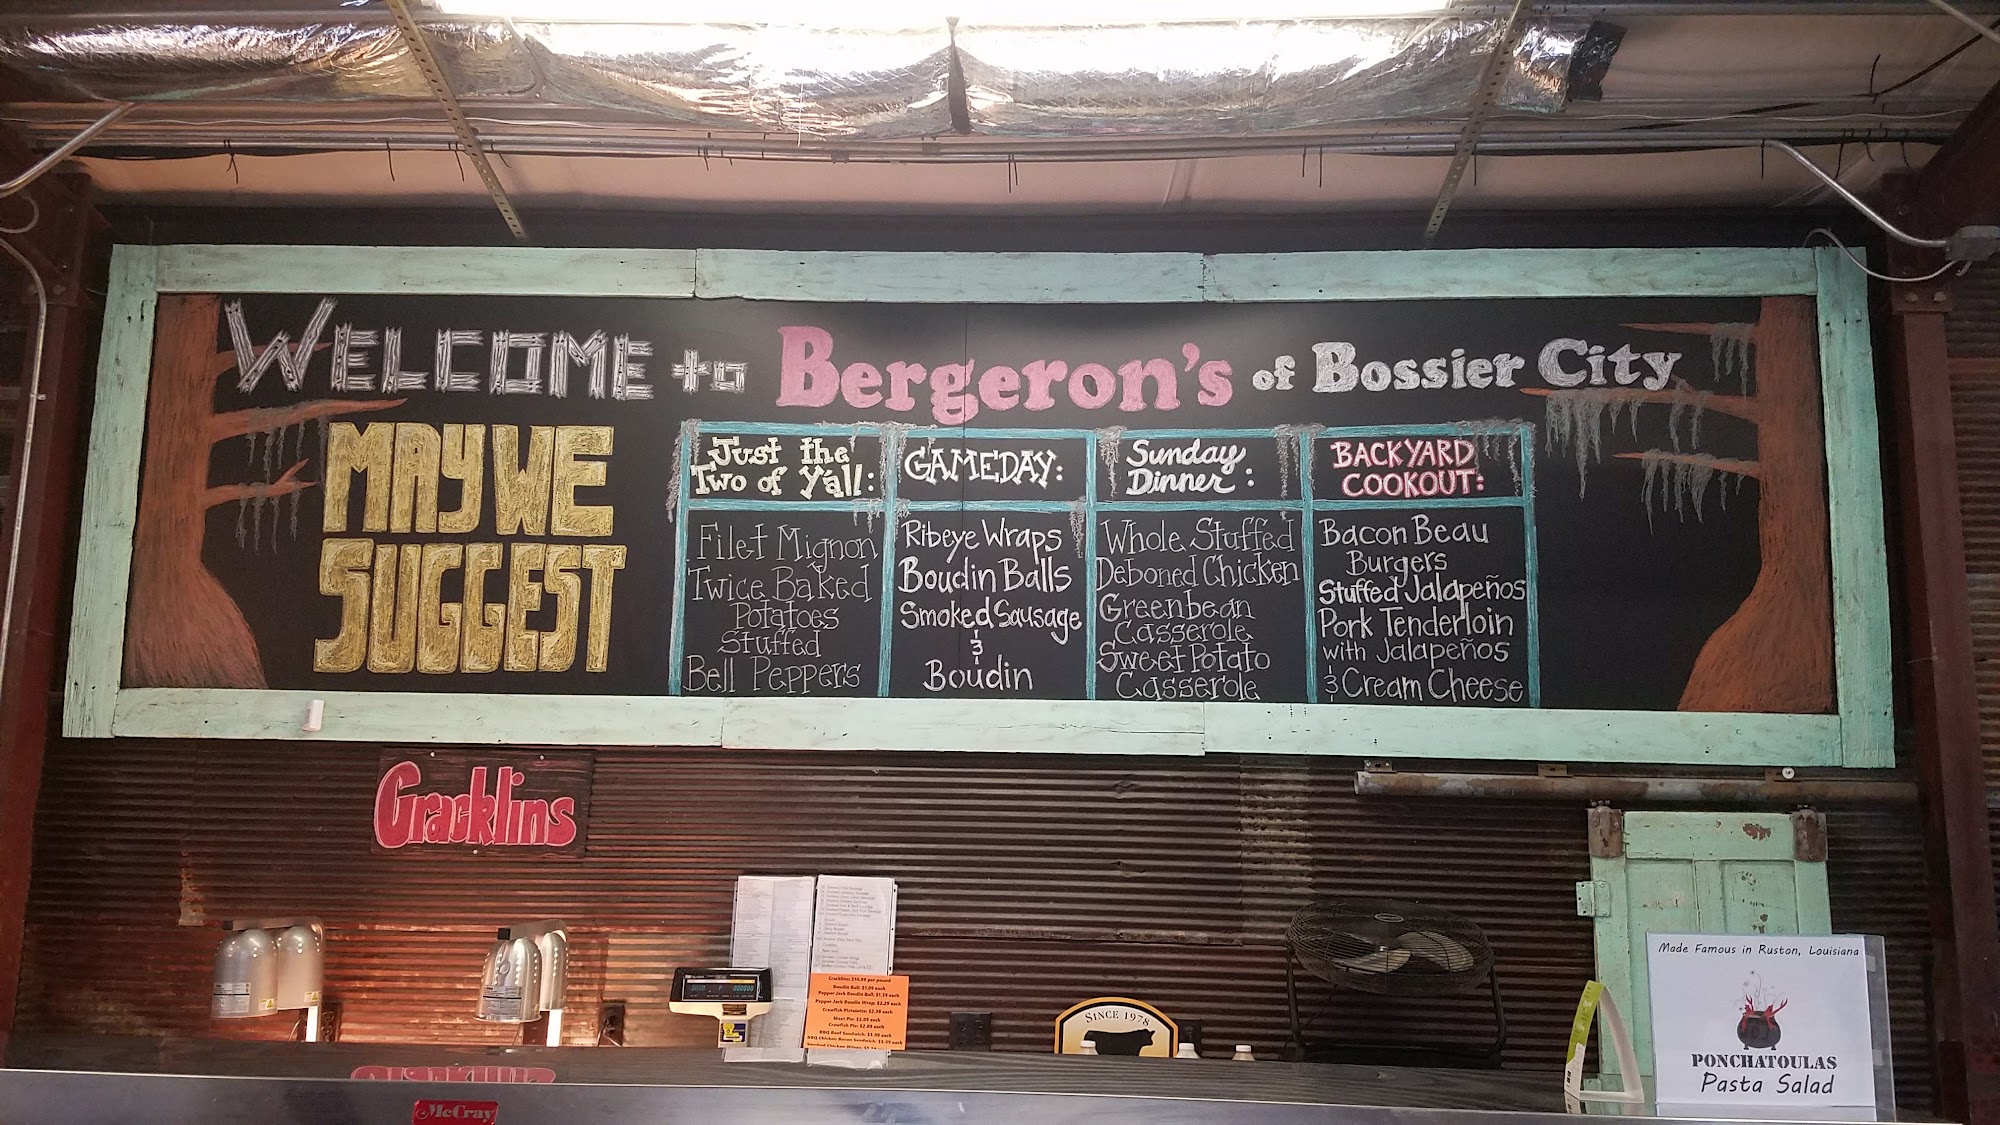 WELCOME to Bergeron's of Bossier City
MAY WE
SUGGEST
Just the
Two of Y'all:
Filet Mignon
Twice Baked
Potatoes
Stuffed
Bell Peppers
GAMEDAY:
Ribeye Wraps
Boudin Balls
Smoked Sausage
&
Boudin
Sunday
Dinner:
Whole Stuffed
Deboned Chicken
Greenbean
Casserole
Sweet Potato
Casserole
BACKYARD
COOKOUT:
Bacon Beau
Burgers
Stuffed Jalapeños
Pork Tenderloin
with Jalapeños
& Cream Cheese
Cracklins
Cracklins: $14.99 per pound
Boudin Ball: $1.09 each
Pepper Jack Boudin Ball: $1.19 each
Pepper Jack Boudin Wrap: $2.29 each
Crawfish Pistolette: $2.39 each
Meat Pie: $2.09 each
Crawfish Pie: $2.09 each
BBQ Beef Sandwich: $3.09 each
BBQ Chicken Bacon Sandwich: $3.09 each
SINCE 1978
Made Famous in Ruston, Louisiana
PONCHATOULAS
Pasta Salad
McCray